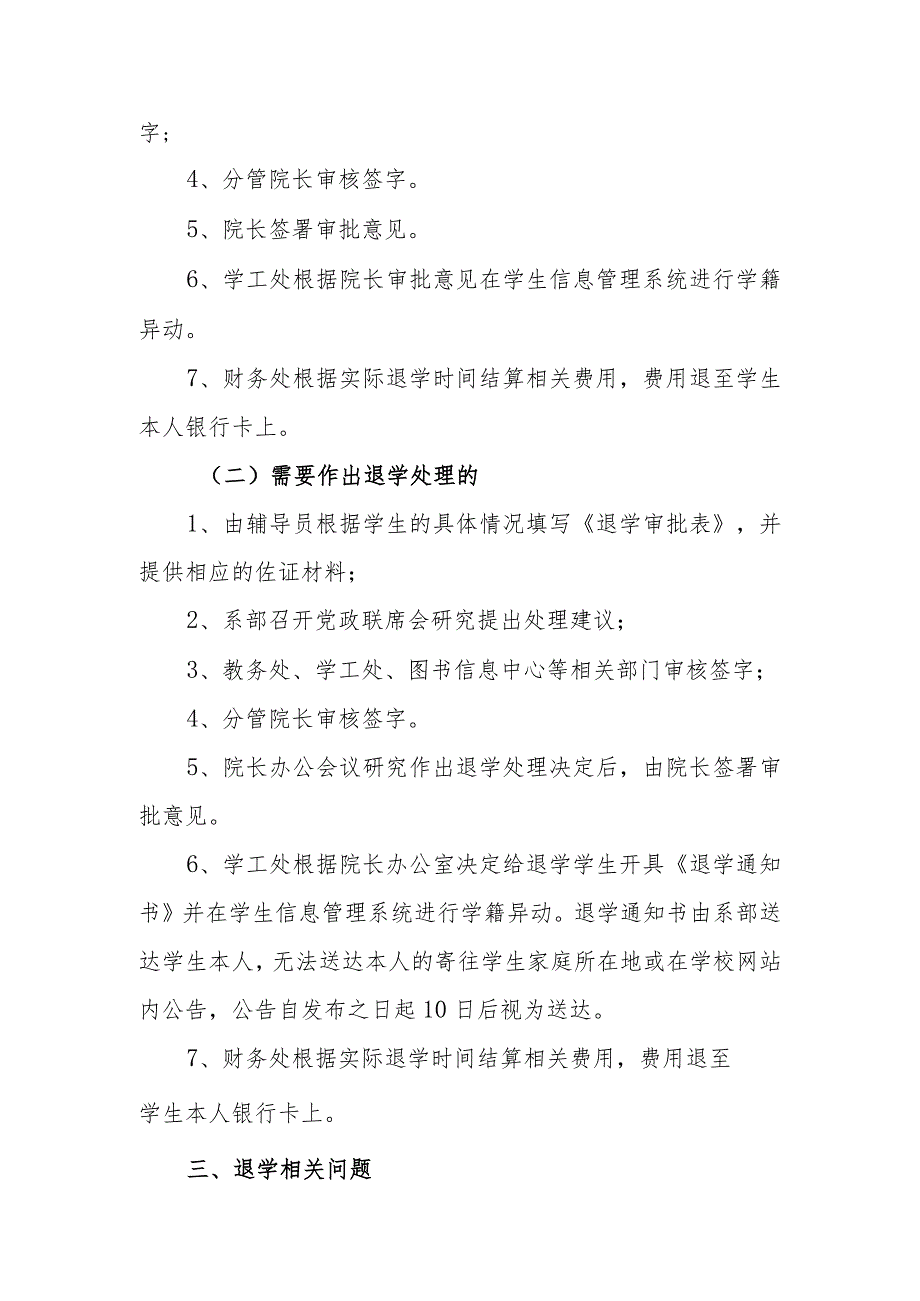 字；
4、分管院长审核签字。
5、院长签署审批意见。
6、学工处根据院长审批意见在学生信息管理系统进行学籍
异动。
7、财务处根据实际退学时间结算相关费用，费用退至学生
本人银行卡上。
（二）需要作出退学处理的
1、由辅导员根据学生的具体情况填写《退学审批表》，并
提供相应的佐证材料；
2、系部召开党政联席会研究提出处理建议；
3、教务处、学工处、图书信息中心等相关部门审核签字；
4、分管院长审核签字。
5、院长办公会议研究作出退学处理决定后，由院长签署审
批意见。
6、学工处根据院长办公室决定给退学学生开具《退学通知
书》并在学生信息管理系统进行学籍异动。退学通知书由系部送
达学生本人，无法送达本人的寄往学生家庭所在地或在学校网站
内公告，公告自发布之日起 10 日后视为送达。
7、财务处根据实际退学时间结算相关费用，费用退至
学生本人银行卡上。
三、退学相关问题